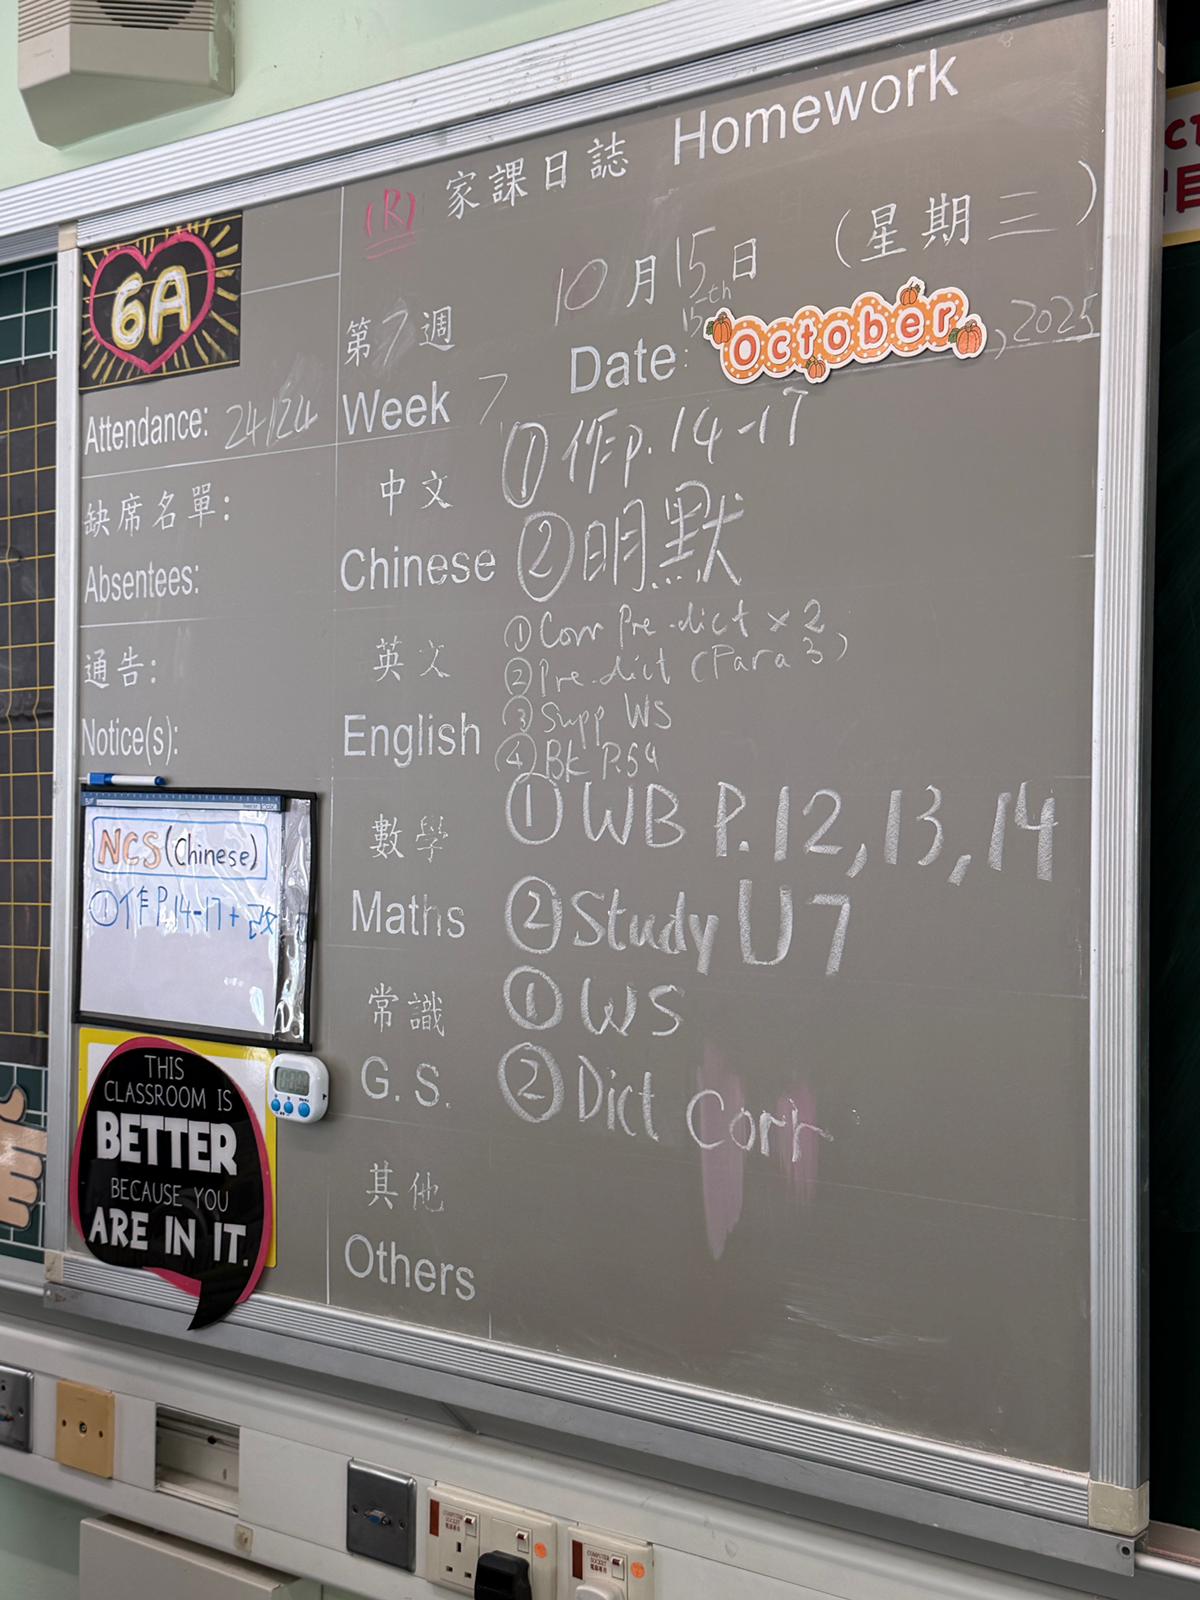 (R) 家課日誌 Homework
6A
10月15日 (星期三)
第7週
15th
Date: October, 2025
Attendance: 24/24
Week 7
缺席名單:
Absentees:
通告:
Notice(s):
中文
Chinese
① 作p.14-17
② 明默
英文
English
① Corr Pre-dict x 2
② Pre-dict (Para 3)
③ Supp WS
④ Bk P.64
數學
Maths
① WB P.12,13,14
② Study U7
常識
G.S.
① WS
② Dict Corr
其他
Others
NCS (Chinese)
① 作 P.14-17 + 改
THIS
CLASSROOM IS
BETTER
BECAUSE YOU
ARE IN IT.
COMPUTER
SOCKET
COMPUTER
SOCKET